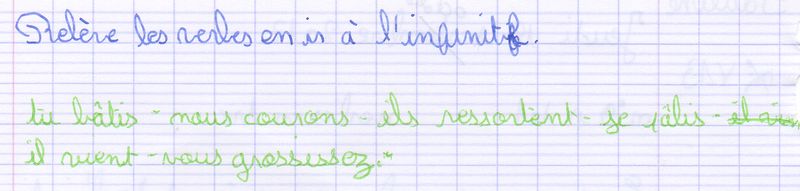 Relève les verbes en ir à l'infinitif.
tu bâtis - nous courons - ils ressortent - je pâlis -
il vient - vous grossissez."